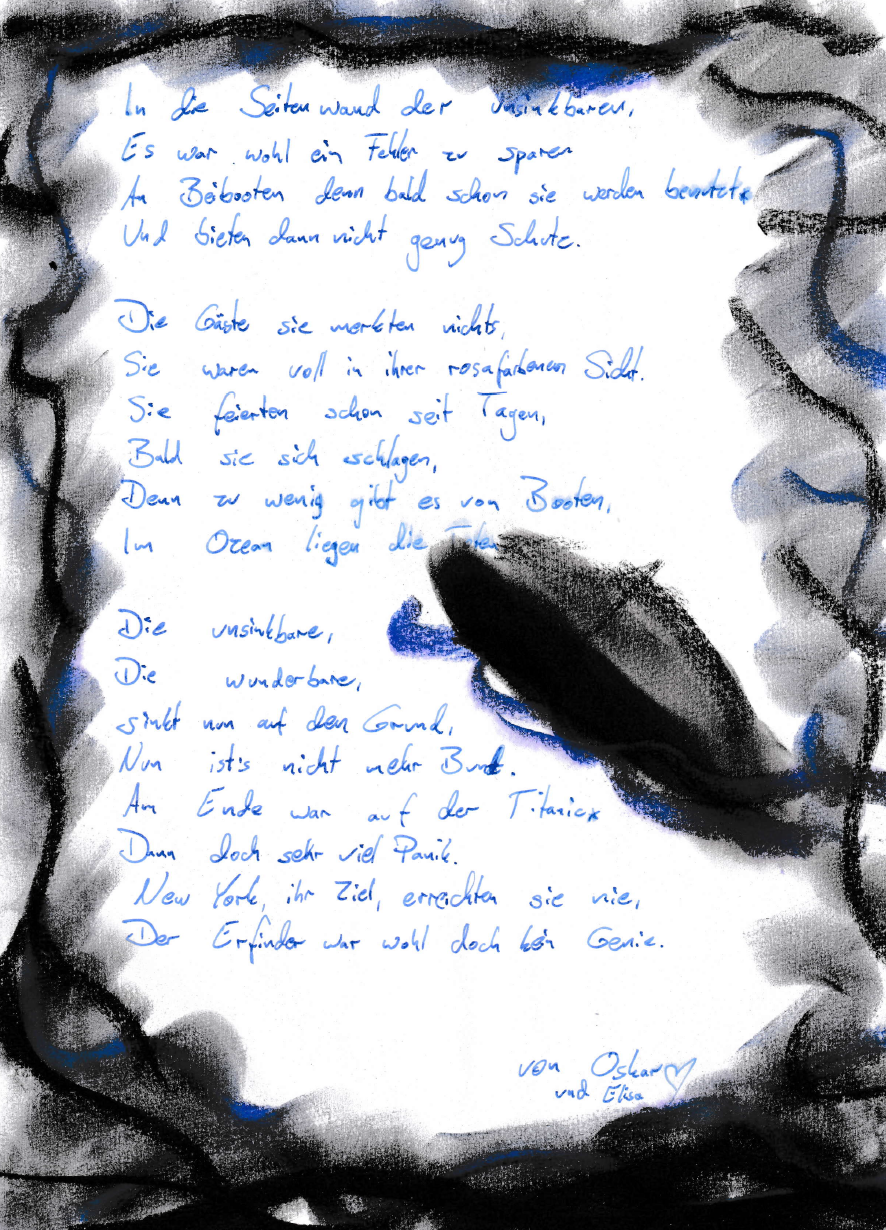 In die Seitenwand der unsinkbaren,
Es war wohl ein Fehler zu sparen
An Beibooten denn bald schon sie werden benutzt
Und bieten dann nicht genug Schutz.
Die Gäste sie merkten nichts,
Sie waren voll in ihrer rosafarbenen Sicht.
Sie feierten schon seit Tagen,
Bald sie sich schlagen,
Denn zu wenig gibt es von Booten,
Im Ozean liegen die Toten
Die unsinkbare,
Die wunderbare,
sinkt nun auf den Grund,
Nun ist's nicht mehr Bunt.
Am Ende war auf der Titanic
Dann doch sehr viel Panik.
New York, ihr Ziel, erreichten sie nie,
Der Erfinder war wohl doch kein Genie.
von Oskar
und Elisa